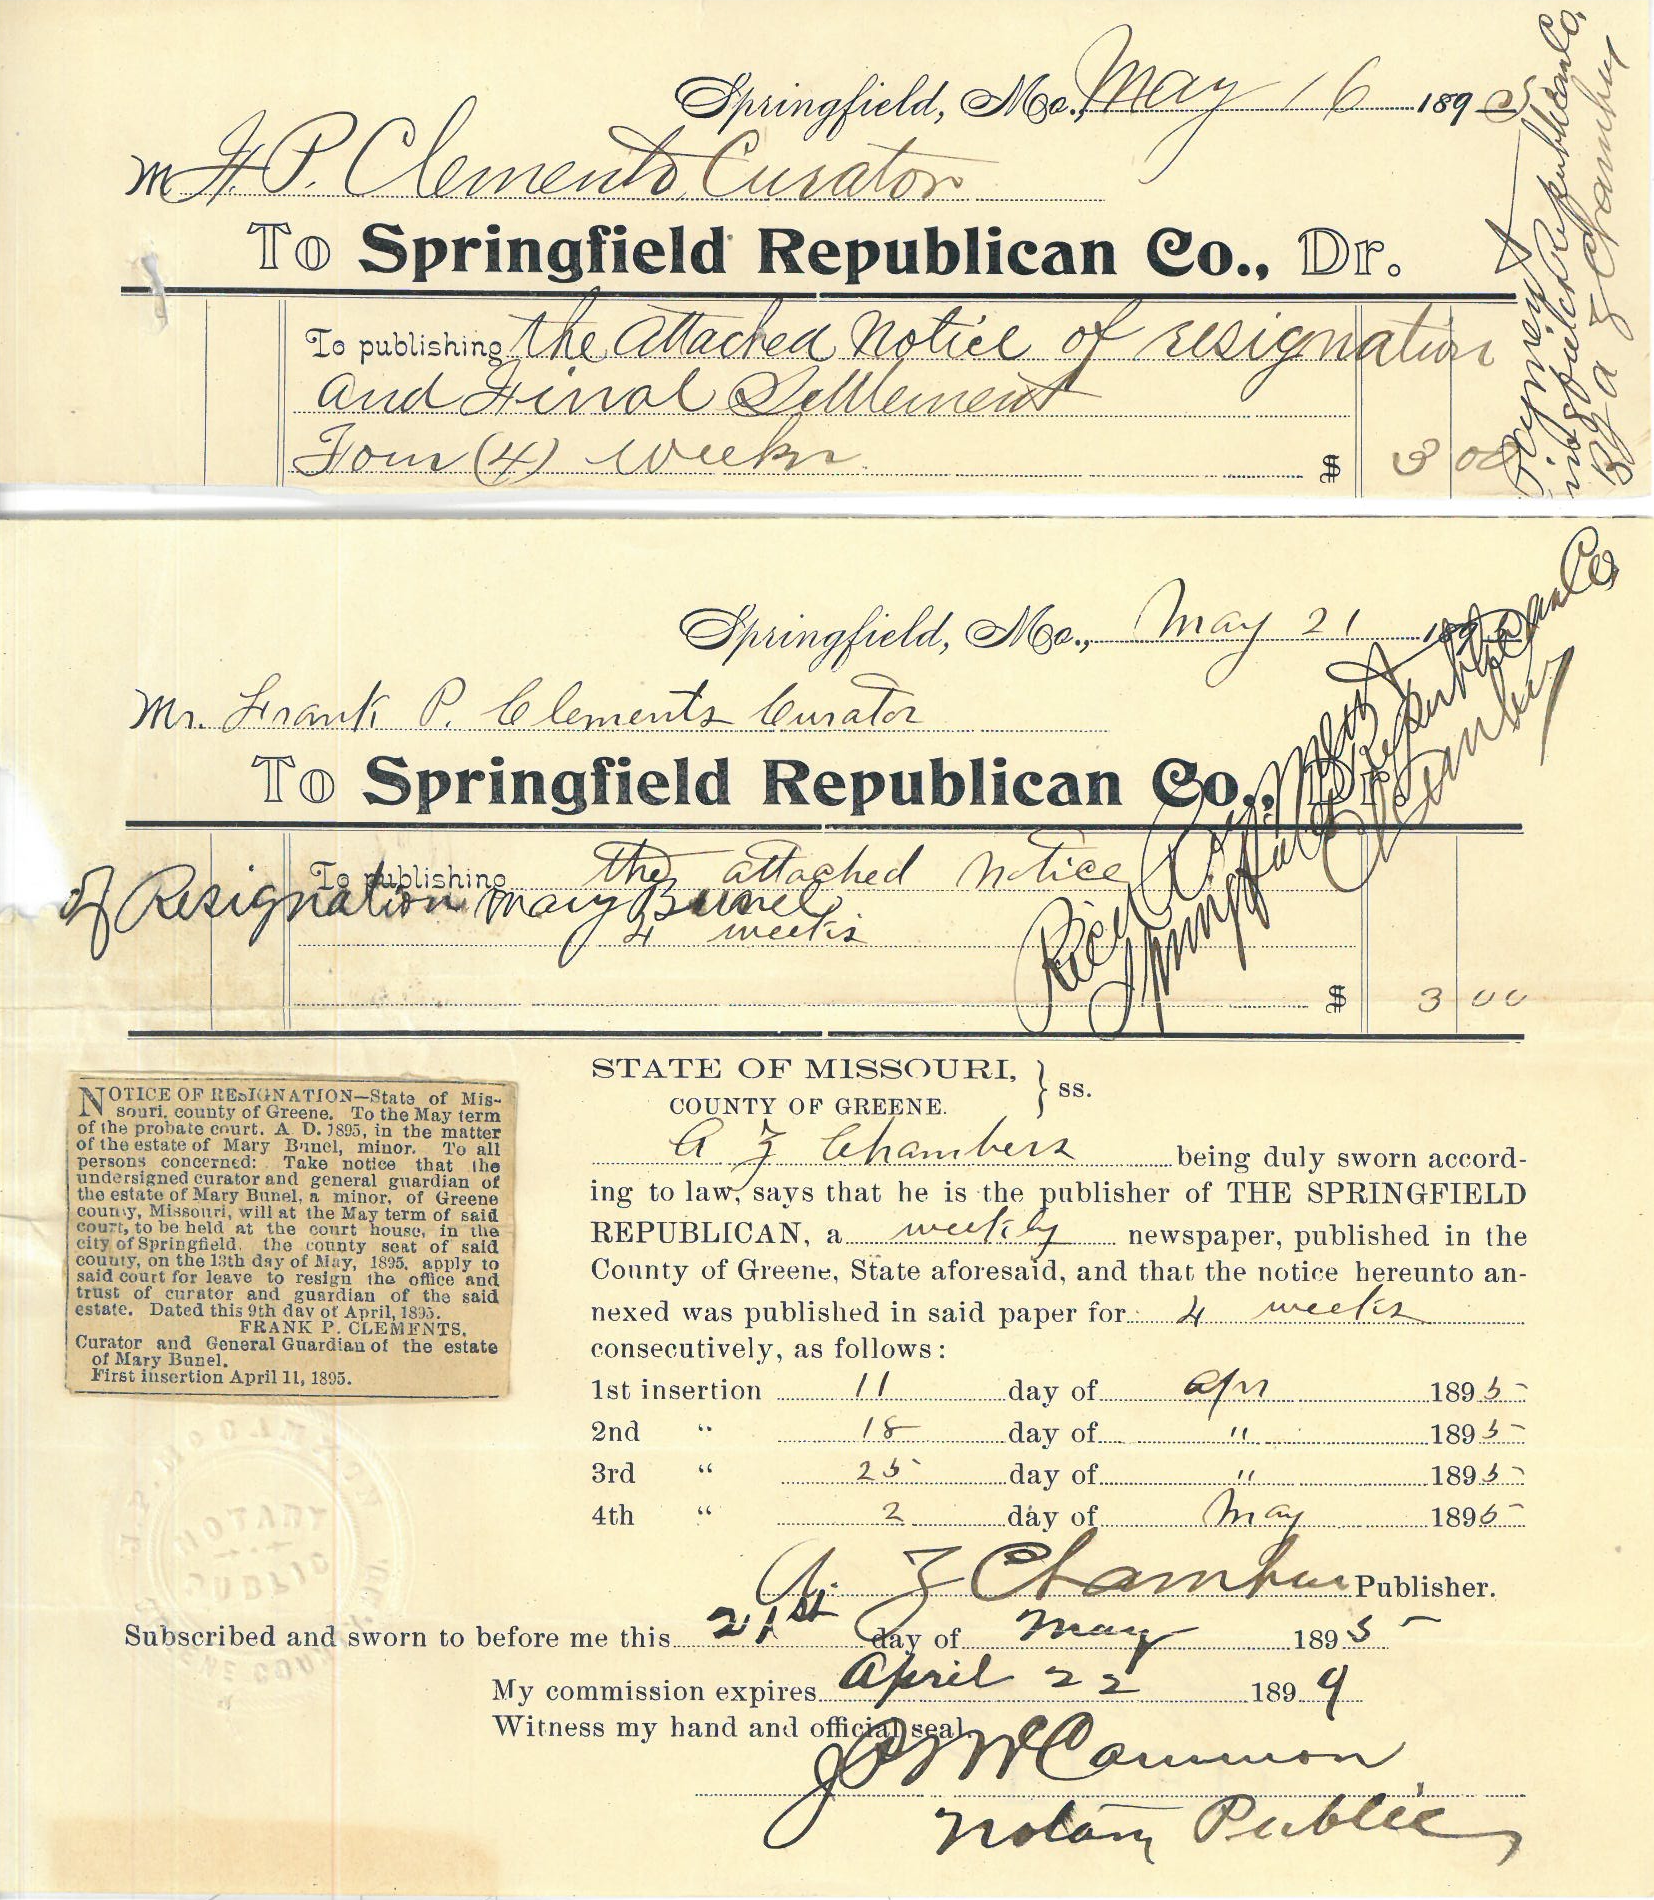 Springfield, Mo., May 16 1895
M F. P. Clements, Curator
To Springfield Republican Co., Dr.
To publishing the attached Notice of resignation
and Final Settlement
Four (4) weeks $ 3 00
Payment
Springfield Republican Co.
By A Z Chambers
Springfield, Mo., May 21 1895
Mr. Frank P. Clements Curator
To Springfield Republican Co., Dr.
To publishing the attached notice
of Resignation Mary Bunel
4 weeks
$ 3 00
Payment
Springfield Republican Co
Chambers
NOTICE OF RESIGNATION—State of Mis-
souri, county of Greene. To the May term
of the probate court. A. D. 1895, in the matter
of the estate of Mary Bunel, minor. To all
persons concerned: Take notice that the
undersigned curator and general guardian of
the estate of Mary Bunel, a minor, of Greene
county, Missouri, will at the May term of said
court, to be held at the court house, in the
city of Springfield, the county seat of said
county, on the 13th day of May, 1895, apply to
said court for leave to resign the office and
trust of curator and guardian of the said
estate. Dated this 9th day of April, 1895.
FRANK P. CLEMENTS,
Curator and General Guardian of the estate
of Mary Bunel.
First insertion April 11, 1895.
STATE OF MISSOURI, } ss.
COUNTY OF GREENE.
A Z Chambers being duly sworn accord-
ing to law, says that he is the publisher of THE SPRINGFIELD
REPUBLICAN, a weekly newspaper, published in the
County of Greene, State aforesaid, and that the notice hereunto an-
nexed was published in said paper for 4 weeks
consecutively, as follows:
1st insertion 11 day of Apr 1895
2nd " 18 day of " 1895
3rd " 25 day of " 1895
4th " 2 day of May 1895
A. Z Chambers Publisher.
Subscribed and sworn to before me this 21st day of May 1895
My commission expires April 22 1899
Witness my hand and official seal.
McCammon
Notary Public
NOTARY
PUBLIC